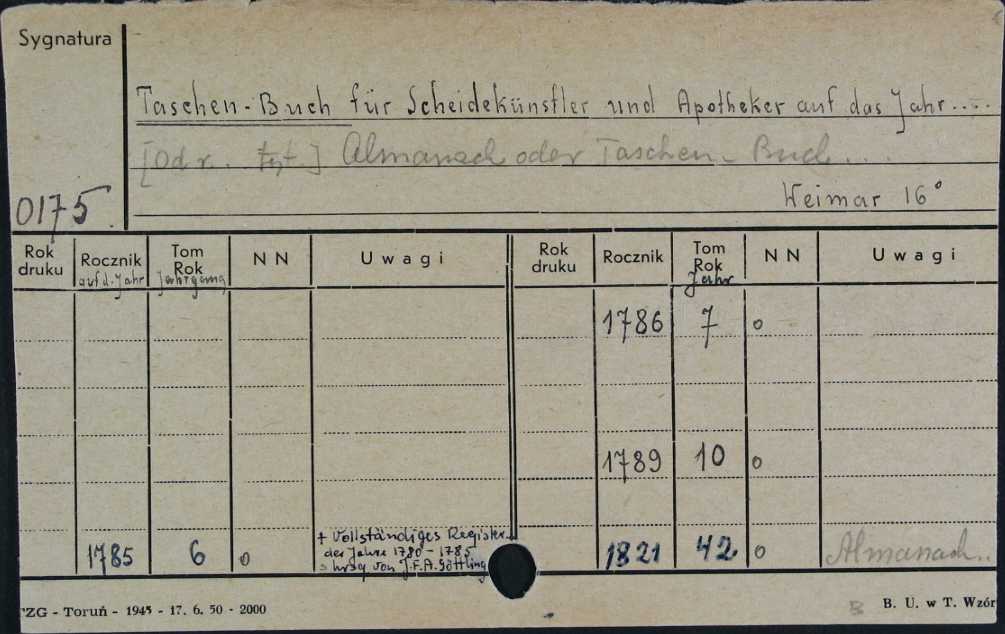 Sygnatura
Taschen-Buch für Scheidekünstler und Apotheker auf das Jahr....
[Od r. .. tyt.] Almanach oder Taschen-Buch....
Weimar 16°
0175
Rok druku Rocznik auf d. Jahr Tom Rok Jahrgang NN Uwagi Rok druku Rocznik Tom Rok Jahr NN Uwagi
1786 7 o
1789 10 o
1785 6 o + Vollständiges Register
der Jahre 1780-1785
hrsg von J.F.A. Göttling
1821 42 o Almanach..
TZG - Toruń - 1945 - 17. 6. 50 - 2000
B. U. w T. Wzór